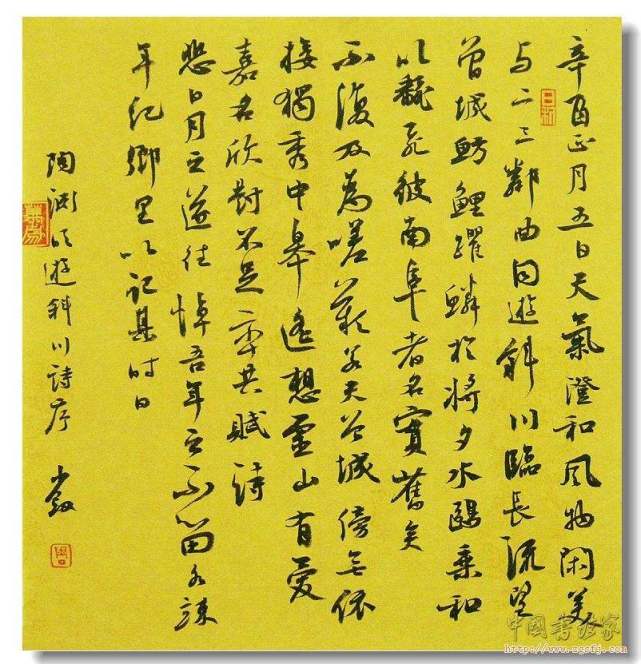 辛酉正月五日天氣澄和風物閑美
与二三鄰曲同遊斜川臨長流望
曾城魴鯉躍鱗於將夕水鷗乘和
以飜飛彼南阜者名實舊矣
不復乃為嗟歎若夫曾城傍無依
接獨秀中皋遙想靈山有愛
嘉名欣對不足率共賦詩
悲日月之遂往悼吾年之不留各疎
年紀鄉里以記其時日
陶淵明遊斜川詩序
中国书法家
http://www.zgsfj.com